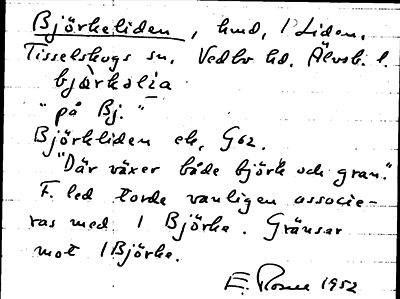 Björkeliden, hmd, 1 Liden.
Tisselskogs sn. Vedbo hd. Älvsb. l.
bjørkəlia
"på Bj."
Björkliden ek. G62.
"Där växer både björk och gran."
F. led torde vanligen associe-
ras med 1 Björke. Gränsar
mot 1 Björke.
E. 1952